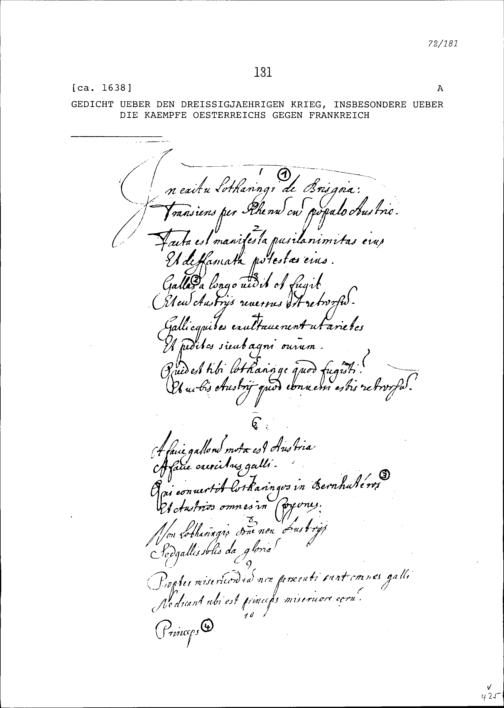 72/181
131
[ca. 1638] A
GEDICHT UEBER DEN DREISSIGJAEHRIGEN KRIEG, INSBESONDERE UEBER
DIE KAEMPFE OESTERREICHS GEGEN FRANKREICH
1 1
In exitu Lotharingi de
Transiens per Rhenū cū populo Austrie.
2
Facta est manifesta pusilanimitas eius
Et deffamata potestas eius.
3
Gallus a longo uidit et fugit
Et cū Austrijs reuersus est retrorsū.
4
Galli equites exultauerunt ut arietes
Et pedites sicut agni ouium.
5
Quid est tibi Lotharinge quod fugisti?
Et uobis Austrij quod conuersi estis retrorsū.
6
A facie gallorū mota est Austria
A facie exercitus galli.
7
Qui conuertit Lotharingos in 3
Et Austrios omnes in
8
Non Lotharingis Dñe non Austrijs
Sed gallis solis da gloriā
9
Propter misericordiā non persecuti sunt omnes galli
Ne dicant ubi est princeps
10
Princeps 4
V
425